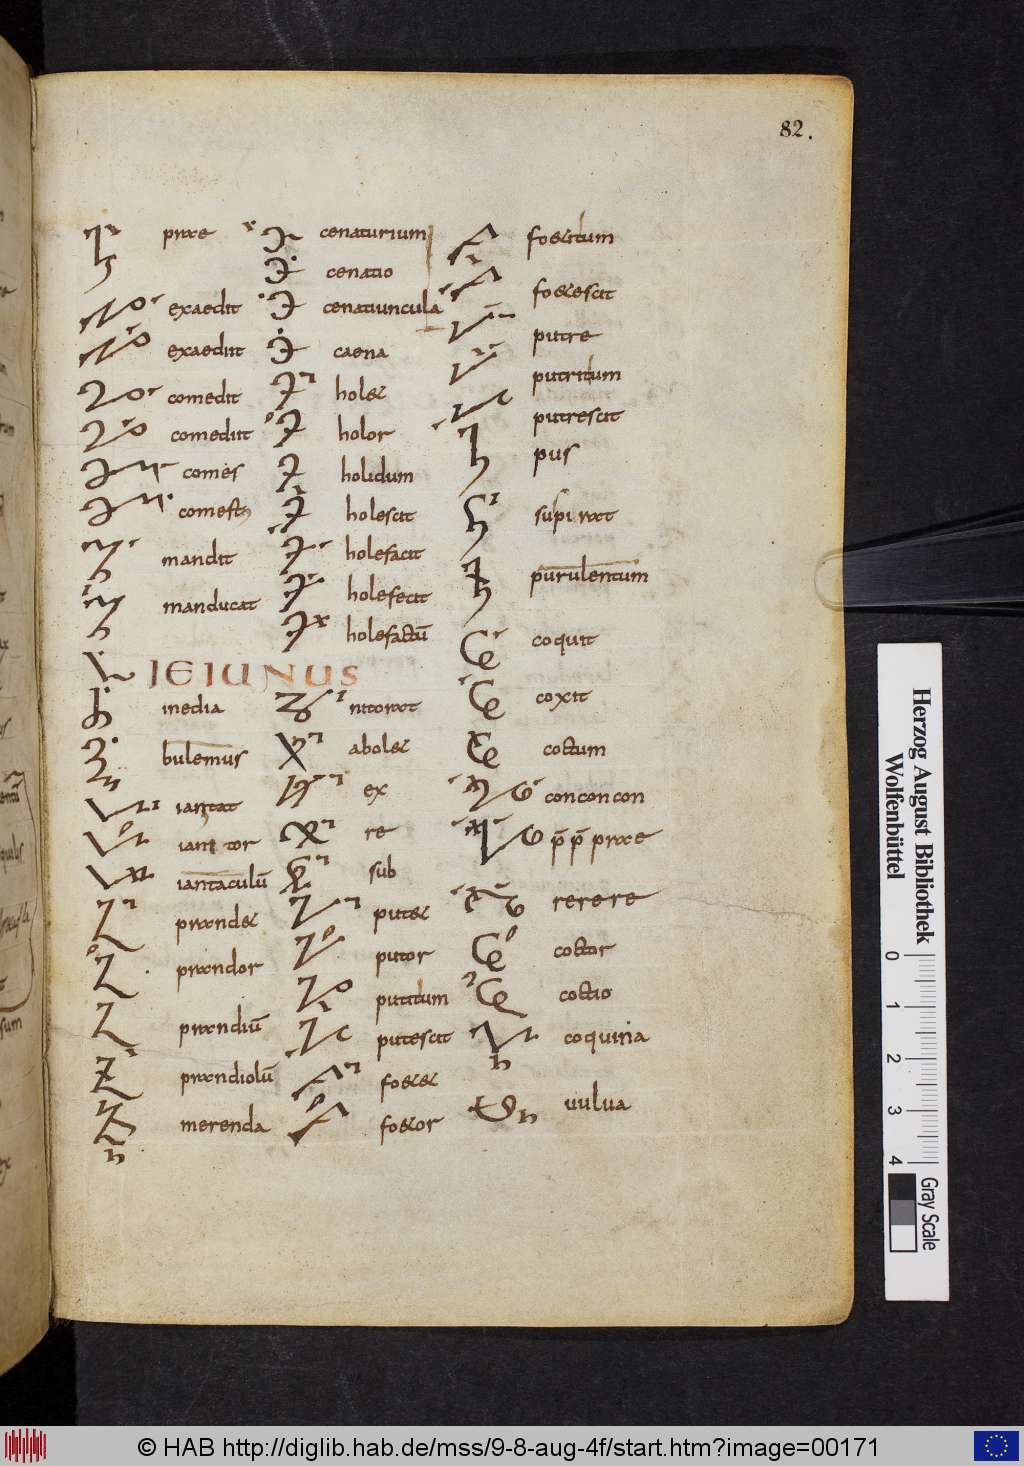 82.
prae
exaedit
exaediit
comedit
comediit
comes
comestus
mandit
manducat
IEIUNUS
inedia
bulemus
iantat
iantator
iantaculū
prander
prandor
prandiū
prandiolū
merenda
cenaturium
cenatio
cenatiuncula
caena
holer
holor
holidum
holescit
holefacit
holefecit
holefactū
nitorat
aboler
ex
re
sub
puter
putor
putidum
putescit
foeter
foetor
foetidum
foetescit
putre
putridum
putrescit
pus
supurat
purulentum
coquit
coxit
coctum
conconcon
p̄ p̄ prae
rerere
coctor
coctio
coquina
uulua
Herzog August Bibliothek
Wolfenbüttel
0 1 2 3 4
Gray Scale
© HAB http://diglib.hab.de/mss/9-8-aug-4f/start.htm?image=00171